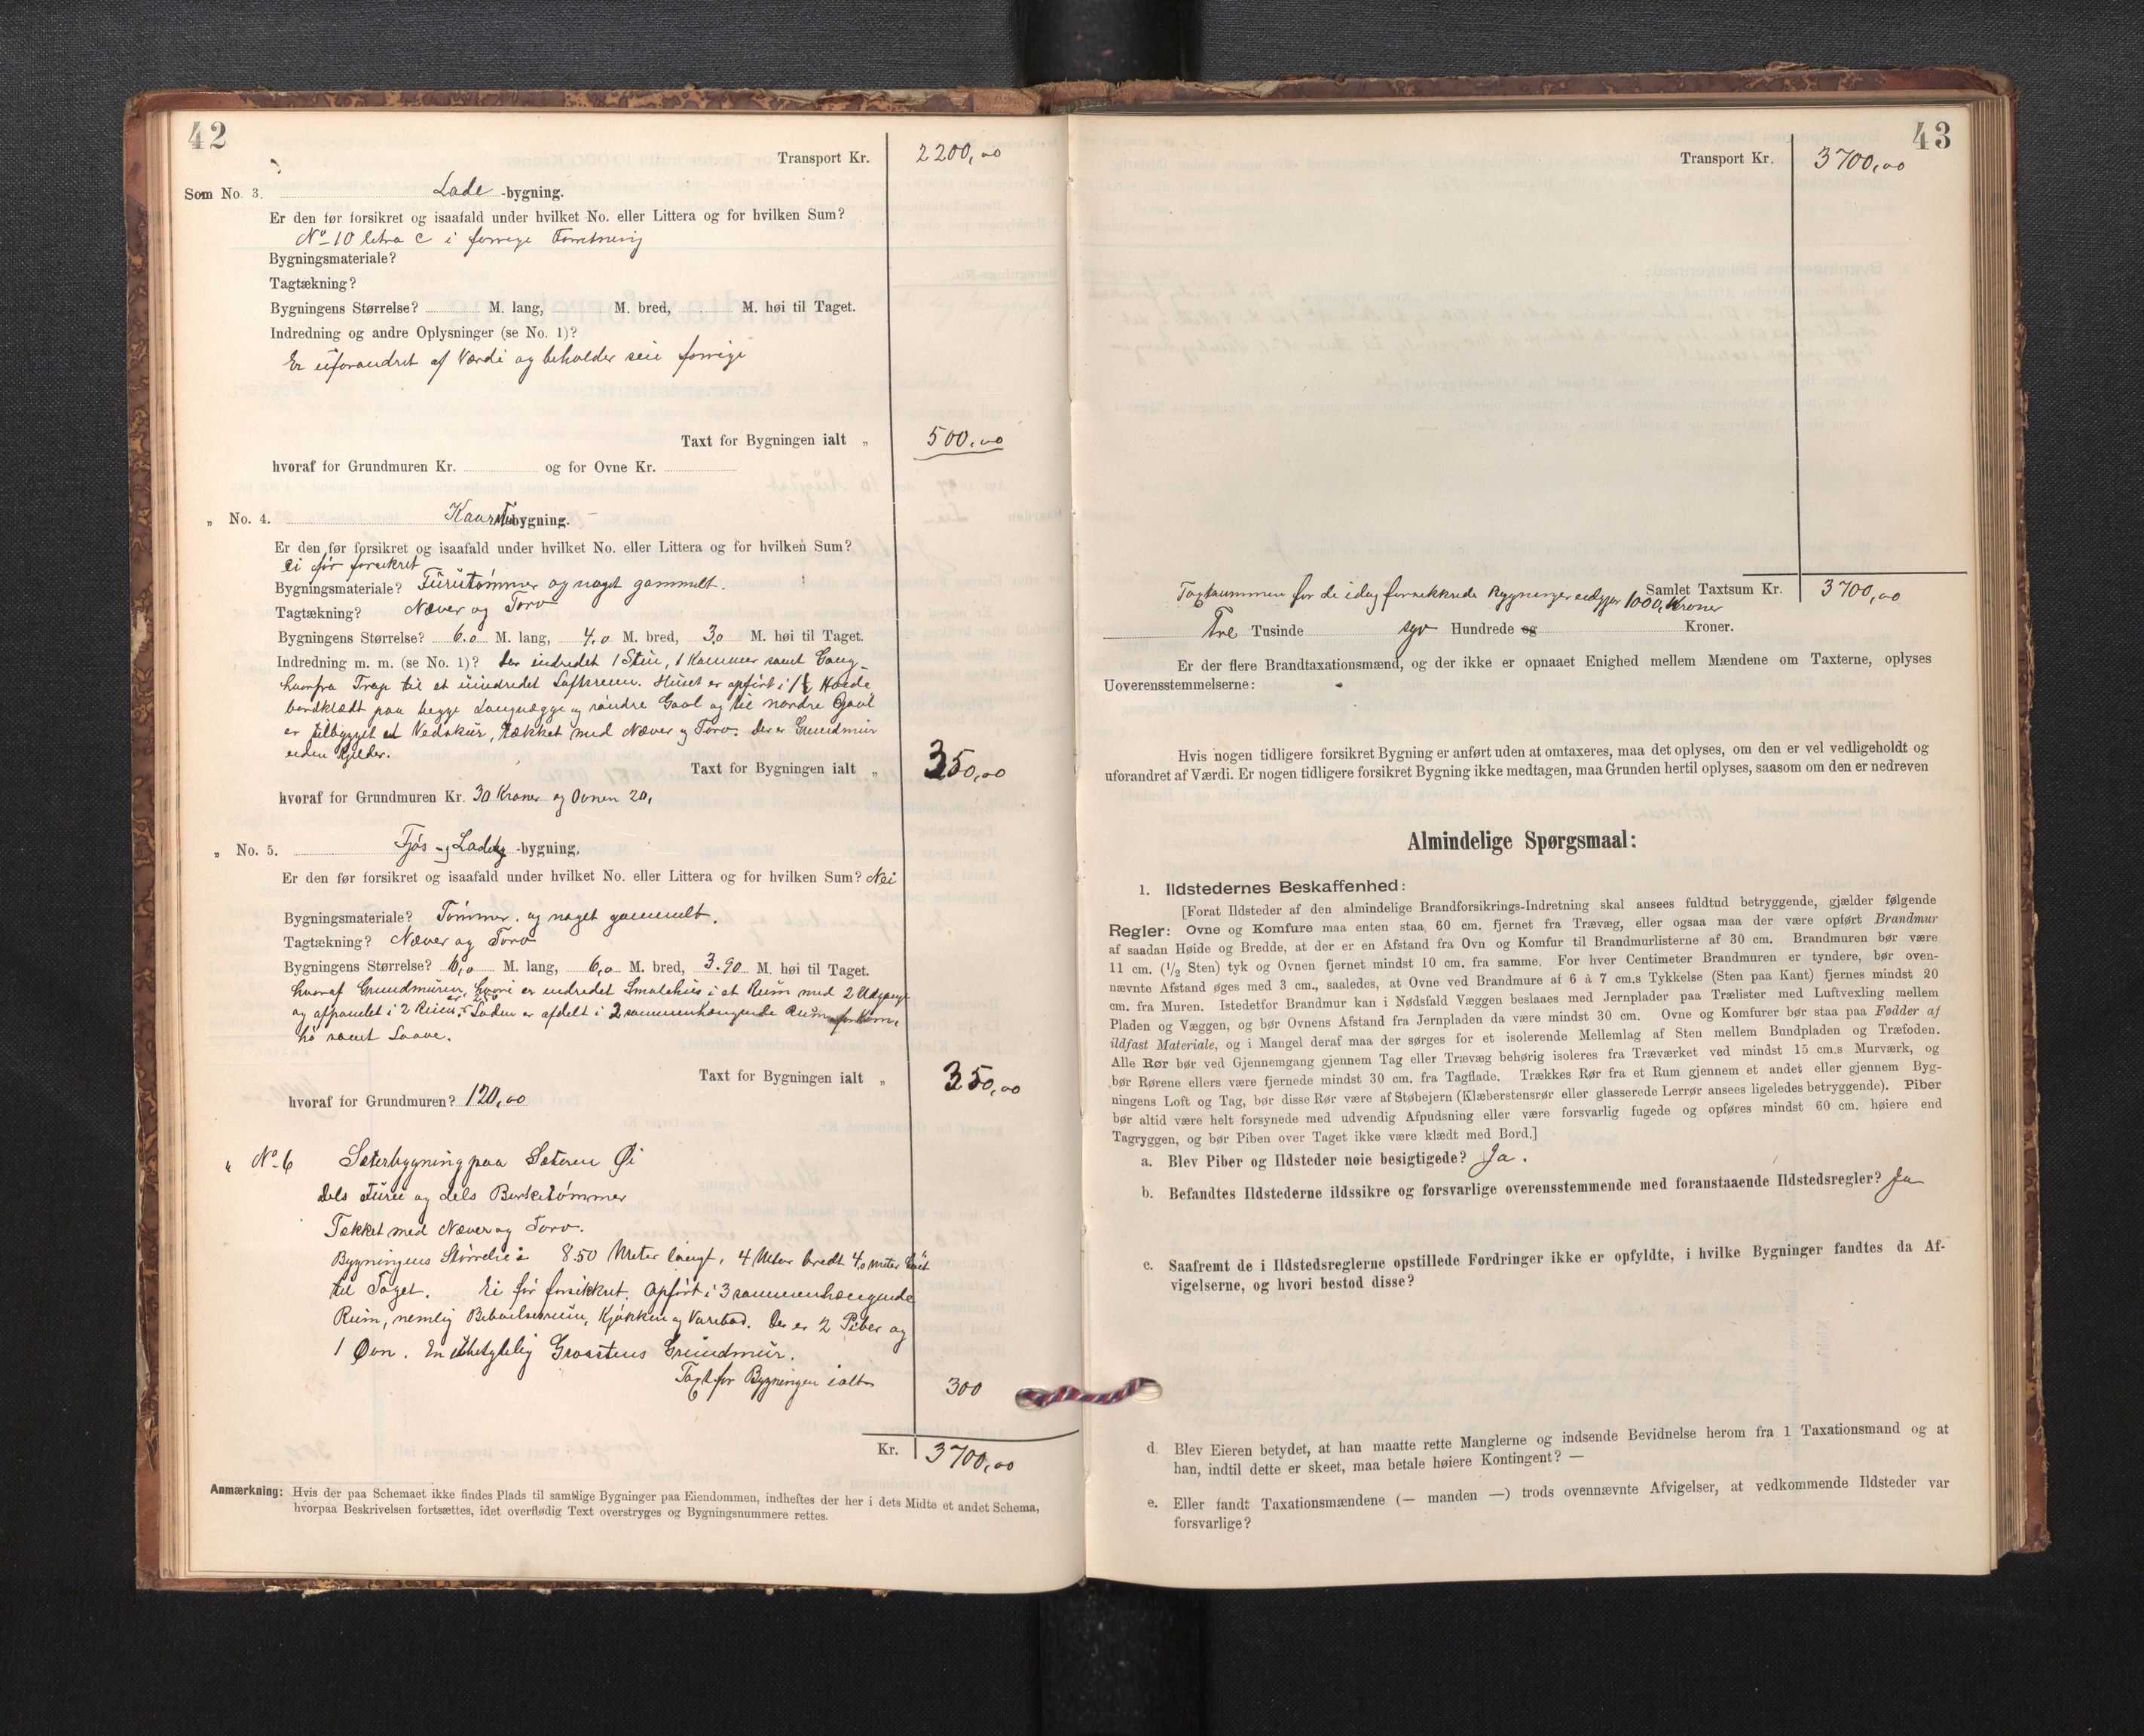 42
Transport Kr. 2200,00
Som No. 3. Lade -bygning.
Er den før forsikret og isaafald under hvilket No. eller Littera og for hvilken Sum?
No 10 letra c i forrige Forretning
Bygningsmateriale?
Tagtækning?
Bygningens Størrelse? M. lang, M. bred, M. høi til Taget.
Indredning og andre Oplysninger (se No. 1)?
Er uforandret af Værdi og beholder sin forrige
Taxt for Bygningen ialt „ 500,00
hvoraf for Grundmuren Kr. og for Ovne Kr.
„ No. 4. bygning.
Er den før forsikret og isaafald under hvilket No. eller Littera og for hvilken Sum?
ei før forsikret
Bygningsmateriale? Furutømmer og noget gammelt.
Tagtækning? Næver og Torv
Bygningens Størrelse? 6.0 M. lang, 4.0 M. bred, 3,0 M. høi til Taget.
Indredning m. m. (se No. 1)? Der indredet 1 Stue, 1 Kammer samt Gang-
hvorfra Trap til et uindredet Lofterum. Huset er opført i 1½ Høide,
bordklædt paa begge Langvægge og søndre Gavl og til nordre Gavl
er tilbygget et Vedskur, tækket med Næver og Torv. Der er Grundmur
uden Kjelder.
Taxt for Bygningen ialt „ 350,00
hvoraf for Grundmuren Kr. 30 Kroner og Ovnen 20,
„ No. 5. Fjøs og Lade -bygning,
Er den før forsikret og isaafald under hvilket No. eller Littera og for hvilken Sum? Nei
Bygningsmateriale? Tømmer. og noget gammelt.
Tagtækning? Næver og Torv
Bygningens Størrelse? 6,0 M. bred, 3.90 M. høi til Taget.
hvoraf Grundmuren, hvori er indredet Smalehus i et Rum med 2 Udgange
og afpanelet i 2 Rum. Laden er afdelt i 2 sammenhængende Rum for Korn,
hø samt Laave.
Taxt for Bygningen ialt „ 350,00
hvoraf for Grundmuren? 120,00
„ No 6 Sæterbygning paa Sæteren Øi
dels Furu og dels Birketømmer
Tækket med Næver og Torv.
Bygningens Størrelse 8.50 Meter langt, 4 Meter bredt 4,0 meter høit
til Taget. Ei før forsikkret. Opført i 3 sammenhængende
Rum, nemlig Beboelsesrum, Kjøkken og Varebod. Der er 2 Piber og
1 Ovn. En ubetydelig Graastens Grundmur.
Taxt for Bygningen ialt 300
Kr. 3700,00
Anmærkning: Hvis der paa Schemaet ikke findes Plads til samtlige Bygninger paa Eiendommen, indheftes der her i dets Midte et andet Schema,
hvorpaa Beskrivelsen fortsættes, idet overflødig Text overstryges og Bygningsnummere rettes.
43
Transport Kr. 3700,00
Samlet Taxtsum Kr. 3700,00
Taxtsummen for de idag forsikkrede Bygninger udgjør 1000, Kroner
Tre Tusinde syv Hundrede og Kroner.
Er der flere Brandtaxationsmænd, og der ikke er opnaaet Enighed mellem Mændene om Taxterne, oplyses
Uoverensstemmelserne:
Hvis nogen tidligere forsikret Bygning er anført uden at omtaxeres, maa det oplyses, om den er vel vedligeholdt og
uforandret af Værdi. Er nogen tidligere forsikret Bygning ikke medtagen, maa Grunden hertil oplyses, saasom om den er nedreven
Almindelige Spørgsmaal:
1. Ildstedernes Beskaffenhed:
[Forat Ildsteder af den almindelige Brandforsikrings-Indretning skal ansees fuldtud betryggende, gjælder følgende
Regler: Ovne og Komfure maa enten staa 60 cm. fjernet fra Trævæg, eller ogsaa maa der være opført Brandmur
af saadan Høide og Bredde, at der er en Afstand fra Ovn og Komfur til Brandmurlisterne af 30 cm. Brandmuren bør være
11 cm. (1/2 Sten) tyk og Ovnen fjernet mindst 10 cm. fra samme. For hver Centimeter Brandmuren er tyndere, bør oven-
nævnte Afstand øges med 3 cm., saaledes, at Ovne ved Brandmure af 6 à 7 cm.s Tykkelse (Sten paa Kant) fjernes mindst 20
cm. fra Muren. Istedetfor Brandmur kan i Nødsfald Væggen beslaaes med Jernplader paa Trælister med Luftvexling mellem
Pladen og Væggen, og bør Ovnens Afstand fra Jernpladen da være mindst 30 cm. Ovne og Komfurer bør staa paa Fødder af
ildfast Materiale, og i Mangel deraf maa der sørges for et isolerende Mellemlag af Sten mellem Bundpladen og Træfoden.
Alle Rør bør ved Gjennemgang gjennem Tag eller Trævæg behørig isoleres fra Træværket ved mindst 15 cm.s Murværk, og
bør Rørene ellers være fjernede mindst 30 cm. fra Tagflade. Trækkes Rør fra et Rum gjennem et andet eller gjennem Byg-
ningens Loft og Tag, bør disse Rør være af Støbejern (Klæberstensrør eller glasserede Lerrør ansees ligeledes betryggende). Piber
bør altid være helt forsynede med udvendig Afpudsning eller være forsvarlig fugede og opføres mindst 60 cm. høiere end
Tagryggen, og bør Piben over Taget ikke være klædt med Bord.]
a. Blev Piber og Ildsteder nøie besigtigede? Ja.
b. Befandtes Ildstederne ildssikre og forsvarlige overensstemmende med foranstaaende Ildstedsregler? Ja
c. Saafremt de i Ildstedsreglerne opstillede Fordringer ikke er opfyldte, i hvilke Bygninger fandtes da Af-
vigelserne, og hvori bestod disse?
d. Blev Eieren betydet, at han maatte rette Manglerne og indsende Bevidnelse herom fra 1 Taxationsmand og at
han, indtil dette er skeet, maa betale høiere Kontingent? —
e. Eller fandt Taxationsmændene (— manden —) trods ovennævnte Afvigelser, at vedkommende Ildsteder var
forsvarlige?